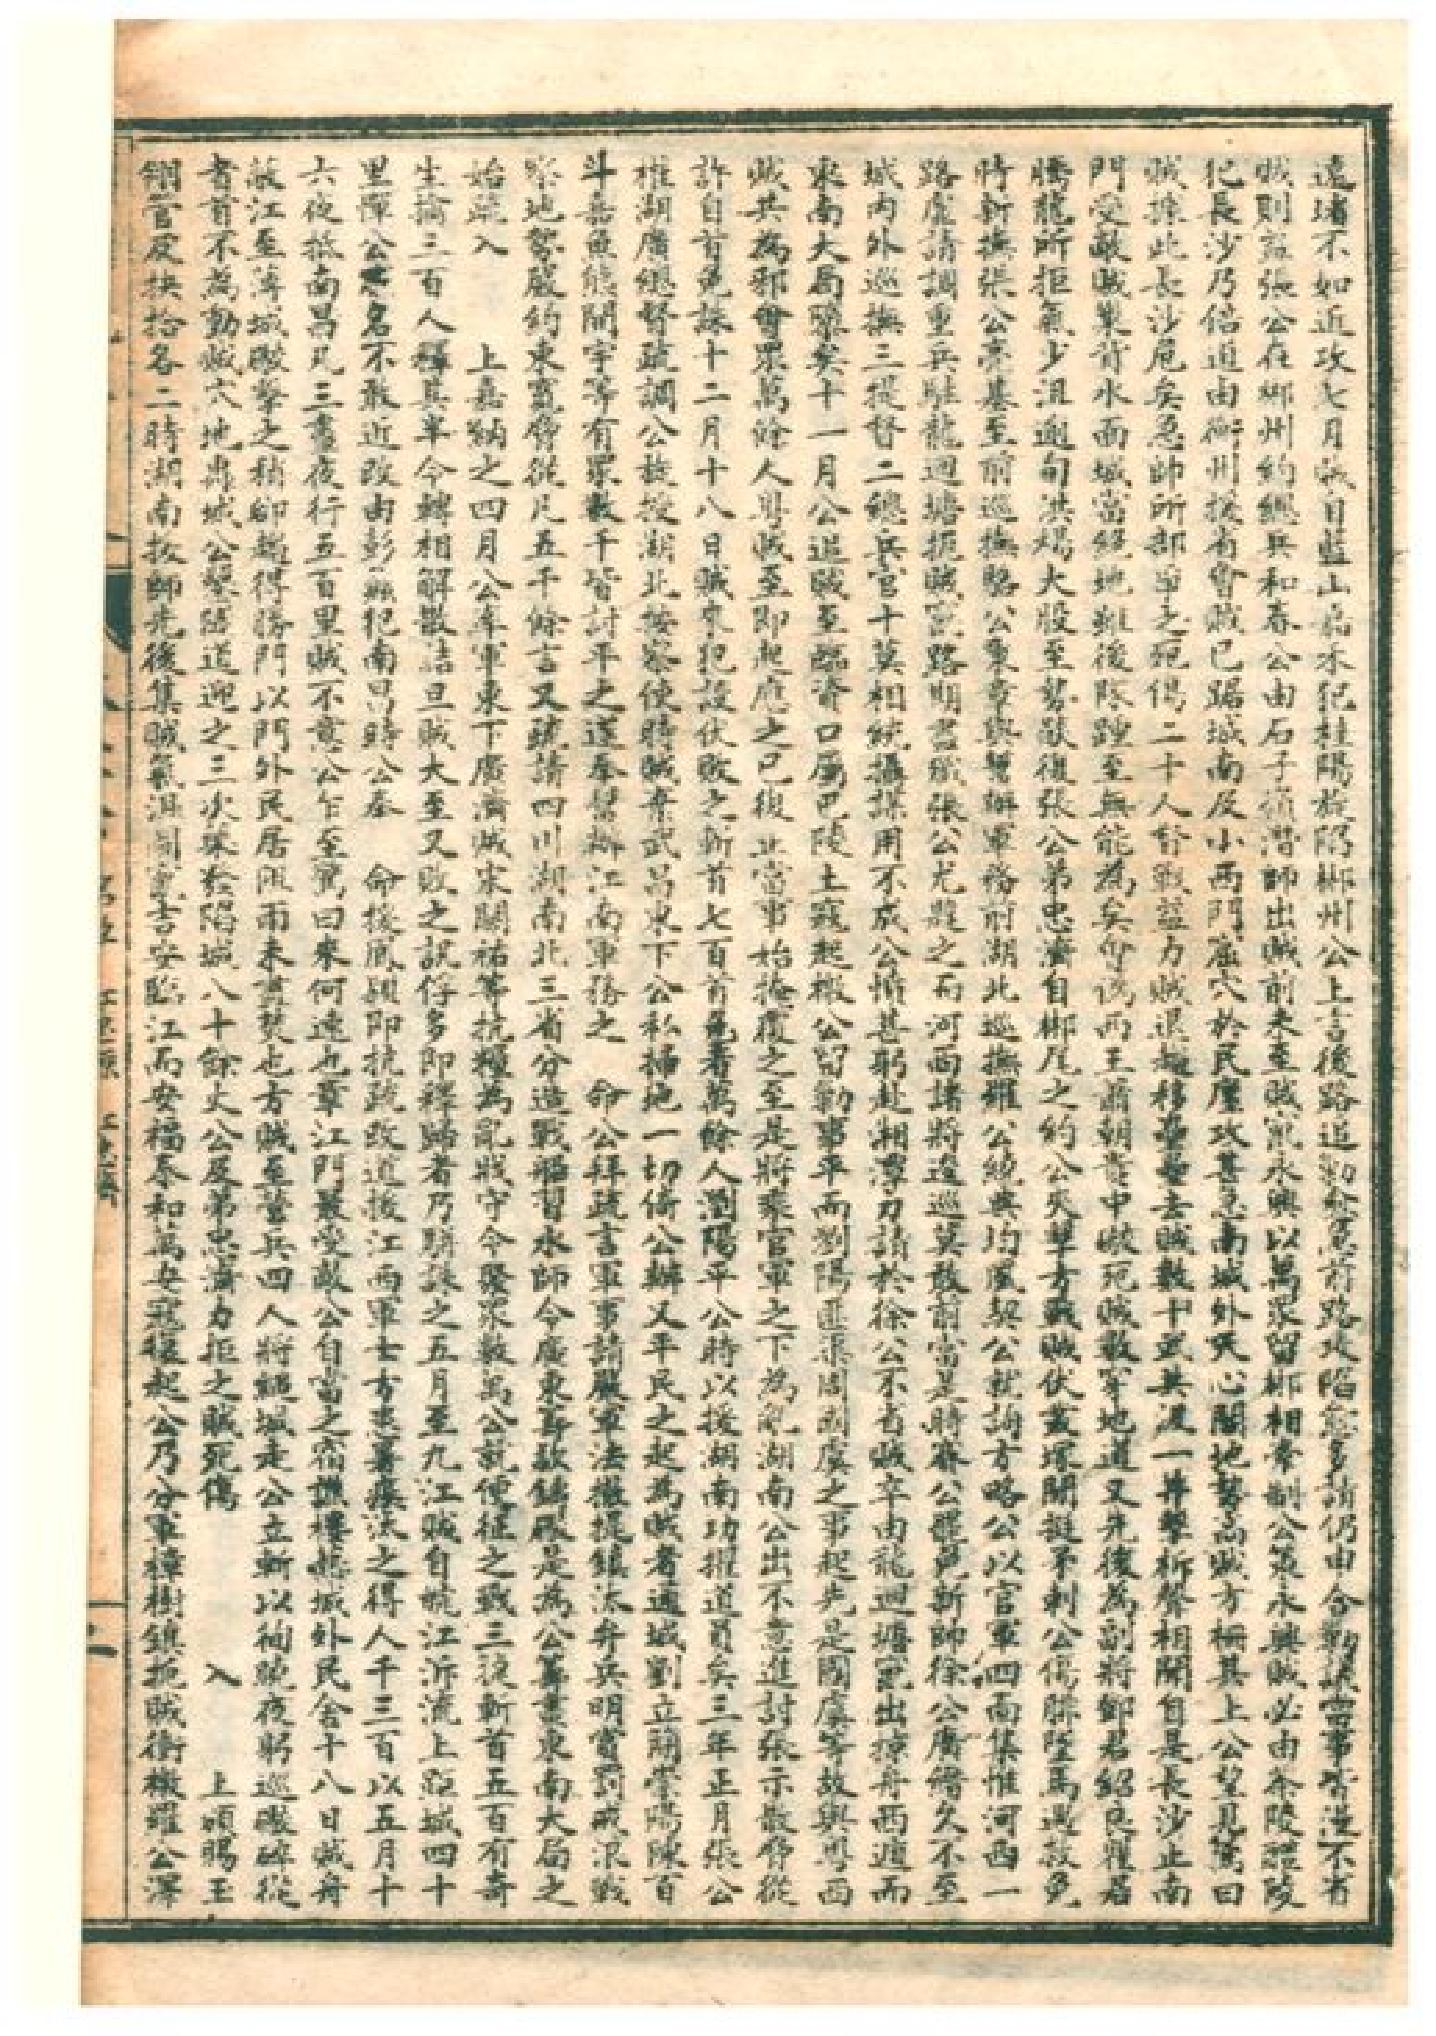 遠堵不如近攻七月賊自藍山嘉禾犯桂陽旋陷郴州公上言後路追勦愈急前路攻陷愈多請仍由合勦議當事皆漫不省
賊則益張公在郴州約總兵和春公由石子嶺潛師出賊前未至賊竄永興以萬眾留郴相牽制公策永興賊必由茶陵醴陵
犯長沙乃倍道由衡州援省會賊已踞城南及小西門窟穴於民廛攻甚急南城外天心閣地勢高賊方柵其上公望見驚曰
賊據此長沙危矣急師所部爭之死傷二十人督戰益力賊退趨移壘去賊數十武共汲一井擊柝聲相聞自是長沙止南
門受敵賊集背水面城當絕地雖後隊踵至無能為矣會偽西王蕭朝貴中礟死賊數穿地道又先後為副將鄧君紹良瞿君
騰龍所拒氣少沮逾旬洪楊大股至勢驟復張公弟忠濟自郴尾之約公夾擊方戰賊伏叢塚間挺矛刺公傷骽墜馬遇救免
時新撫張公亮基至前巡撫駱公秉章與幫辦軍務前湖北巡撫羅公繞典均風契公就詢方略公以官軍四面集惟河西一
路虛請調重兵駐龍迴塘扼賊竄路期書職張公尤韙之而河西諸將逡巡莫敢前當是時賽公罷免新帥徐公廣縉久不至
城內外巡撫三提督二總兵官十莫相統攝謀用不成公憤甚躬赴湘潭力請於徐公不省賊卒由龍迴塘竄出掠舟西遁而
東南大局隳矣十一月公追賊至臨資口屬巴陵土寇起檄公留勦事平而瀏陽匪渠周國虞之事起先是國虞等故與粵西
賊共為邪會眾萬餘人粵賊至即起應之已復止當事始掩覆之至是將乘官軍之下為亂湖南公出不意進討張示散脅從
許自首免誅十二月十八日賊來犯設伏敗之斬首七百首免者萬餘人瀏陽平公時以援湖南功擢道員矣三年正月張公
権湖廣總督疏調公旋授湖北按察使時賊棄武昌東下公私掃地一切倚公辦又平民之起為賊者通城劉立簡崇陽陳百
斗嘉魚熊開宇等有眾數千皆討平之遂奉幫辦江南軍務之 命公拜疏言軍事請嚴軍法撤提鎮汰弁兵明賞罰戒浪戰
察地勢嚴約束寬脅從凡五千餘言又疏請四川湖南北三省分造戰船習水師令廣東籌砲鑄服是為公籌畫東南大局之
始疏入 上嘉納之四月公率軍東下廣濟賊宋關祐等抗糧為亂戕守令聚眾數萬公就便征之戰三捷斬首五百有奇
生擒三百人釋其半令轉相解散詰旦賊大至又敗之訊俘多即釋歸者乃駢誅之五月至九江賊自皖江泝流上距城四十
里憚公名不敢近改由彭蠡犯南昌時公奉 命援鳳潁即抗疏改道援江西軍士方患暑瘴汰之得人千三百以五月十
六夜抵南昌凡三晝夜行五百里賊不意公乍至驚曰來何速也章江門最受敵公自當之宿譙樓悉城外民舍十八日賊舟
蔽江至薄城礟擊之稍卻趨得勝門以門外民居阻雨未盡焚也方賊至營兵四人將縋城走公立斬以徇曉夜躬巡礟碎從
者首不為動賊穴地轟城公鑿隧道迎之三次藥發陷城八十餘丈公及弟忠濟力拒之賊死傷 入 上頒賜玉
翎管及扶拾各二時湖南援師先後集賊氣沮閏竄吉安臨江而安福泰和萬安寇復起公乃分軍樟樹鎮扼賊衝檄羅公澤